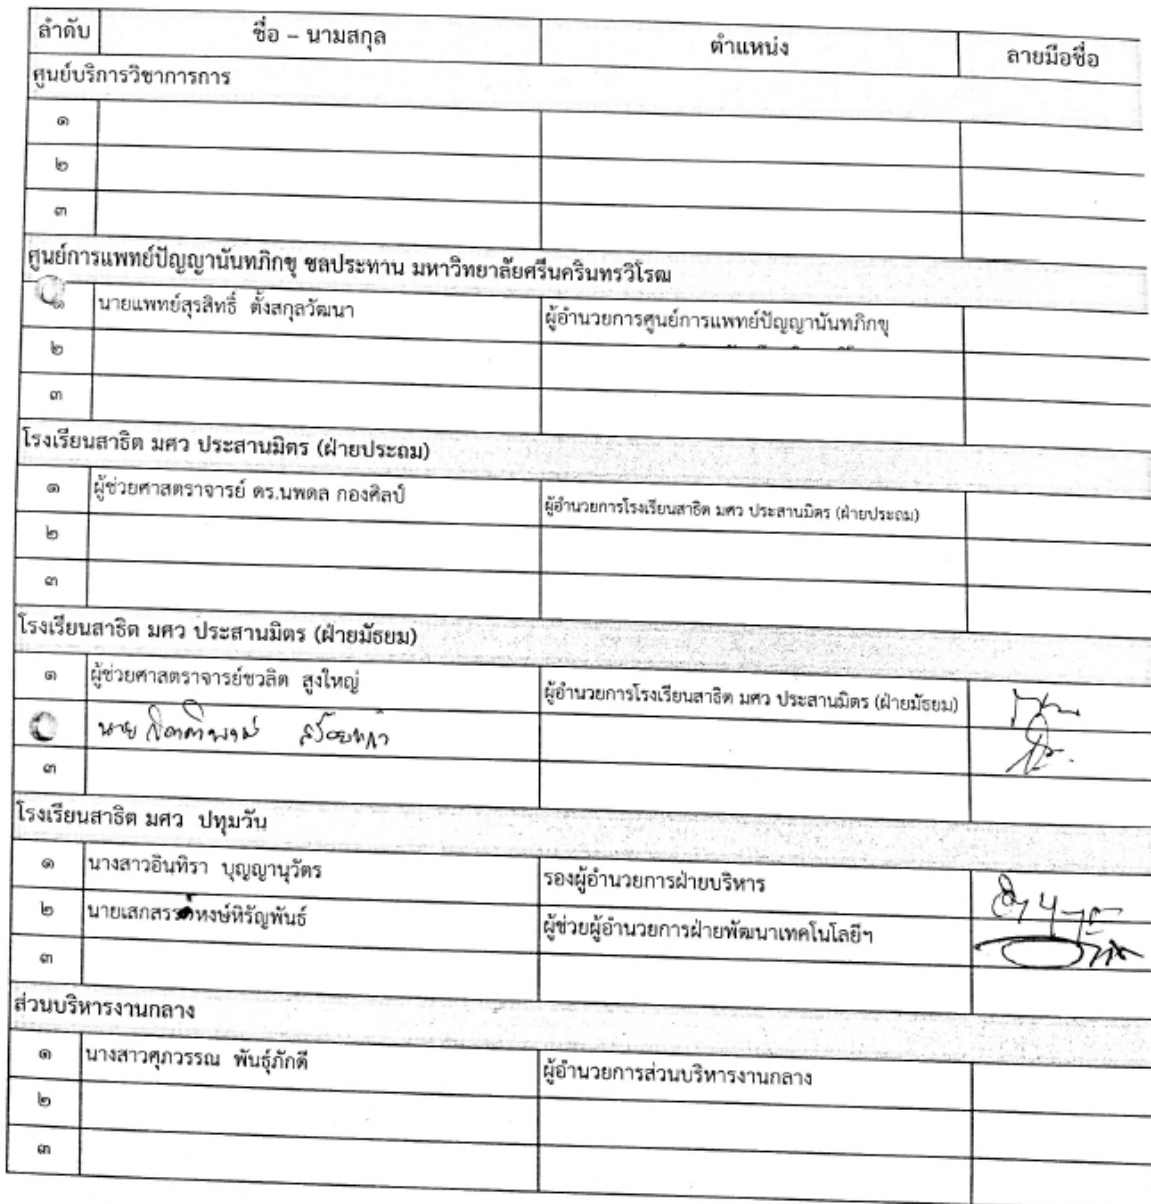 ลำดับ ชื่อ – นามสกุล ตำแหน่ง ลายมือชื่อ
ศูนย์บริการวิชาการการ
๑
๒
๓
ศูนย์การแพทย์ปัญญานันทภิกขุ ชลประทาน มหาวิทยาลัยศรีนครินทรวิโรฒ
๑ นายแพทย์สุรสิทธิ์ ตั้งสกุลวัฒนา ผู้อำนวยการศูนย์การแพทย์ปัญญานันทภิกขุ
๒
๓
โรงเรียนสาธิต มศว ประสานมิตร (ฝ่ายประถม)
๑ ผู้ช่วยศาสตราจารย์ ดร.นพดล กองศิลป์ ผู้อำนวยการโรงเรียนสาธิต มศว ประสานมิตร (ฝ่ายประถม)
๒
๓
โรงเรียนสาธิต มศว ประสานมิตร (ฝ่ายมัธยม)
๑ ผู้ช่วยศาสตราจารย์ชวลิต สูงใหญ่ ผู้อำนวยการโรงเรียนสาธิต มศว ประสานมิตร (ฝ่ายมัธยม)
นาย
๓
โรงเรียนสาธิต มศว ปทุมวัน
๑ นางสาวอินทิรา บุญญานุวัตร รองผู้อำนวยการฝ่ายบริหาร
๒ นายเสกสรรค์หงษ์หิรัญพันธ์ ผู้ช่วยผู้อำนวยการฝ่ายพัฒนาเทคโนโลยีฯ
๓
ส่วนบริหารงานกลาง
๑ นางสาวศุภวรรณ พันธุ์ภักดี ผู้อำนวยการส่วนบริหารงานกลาง
๒
๓